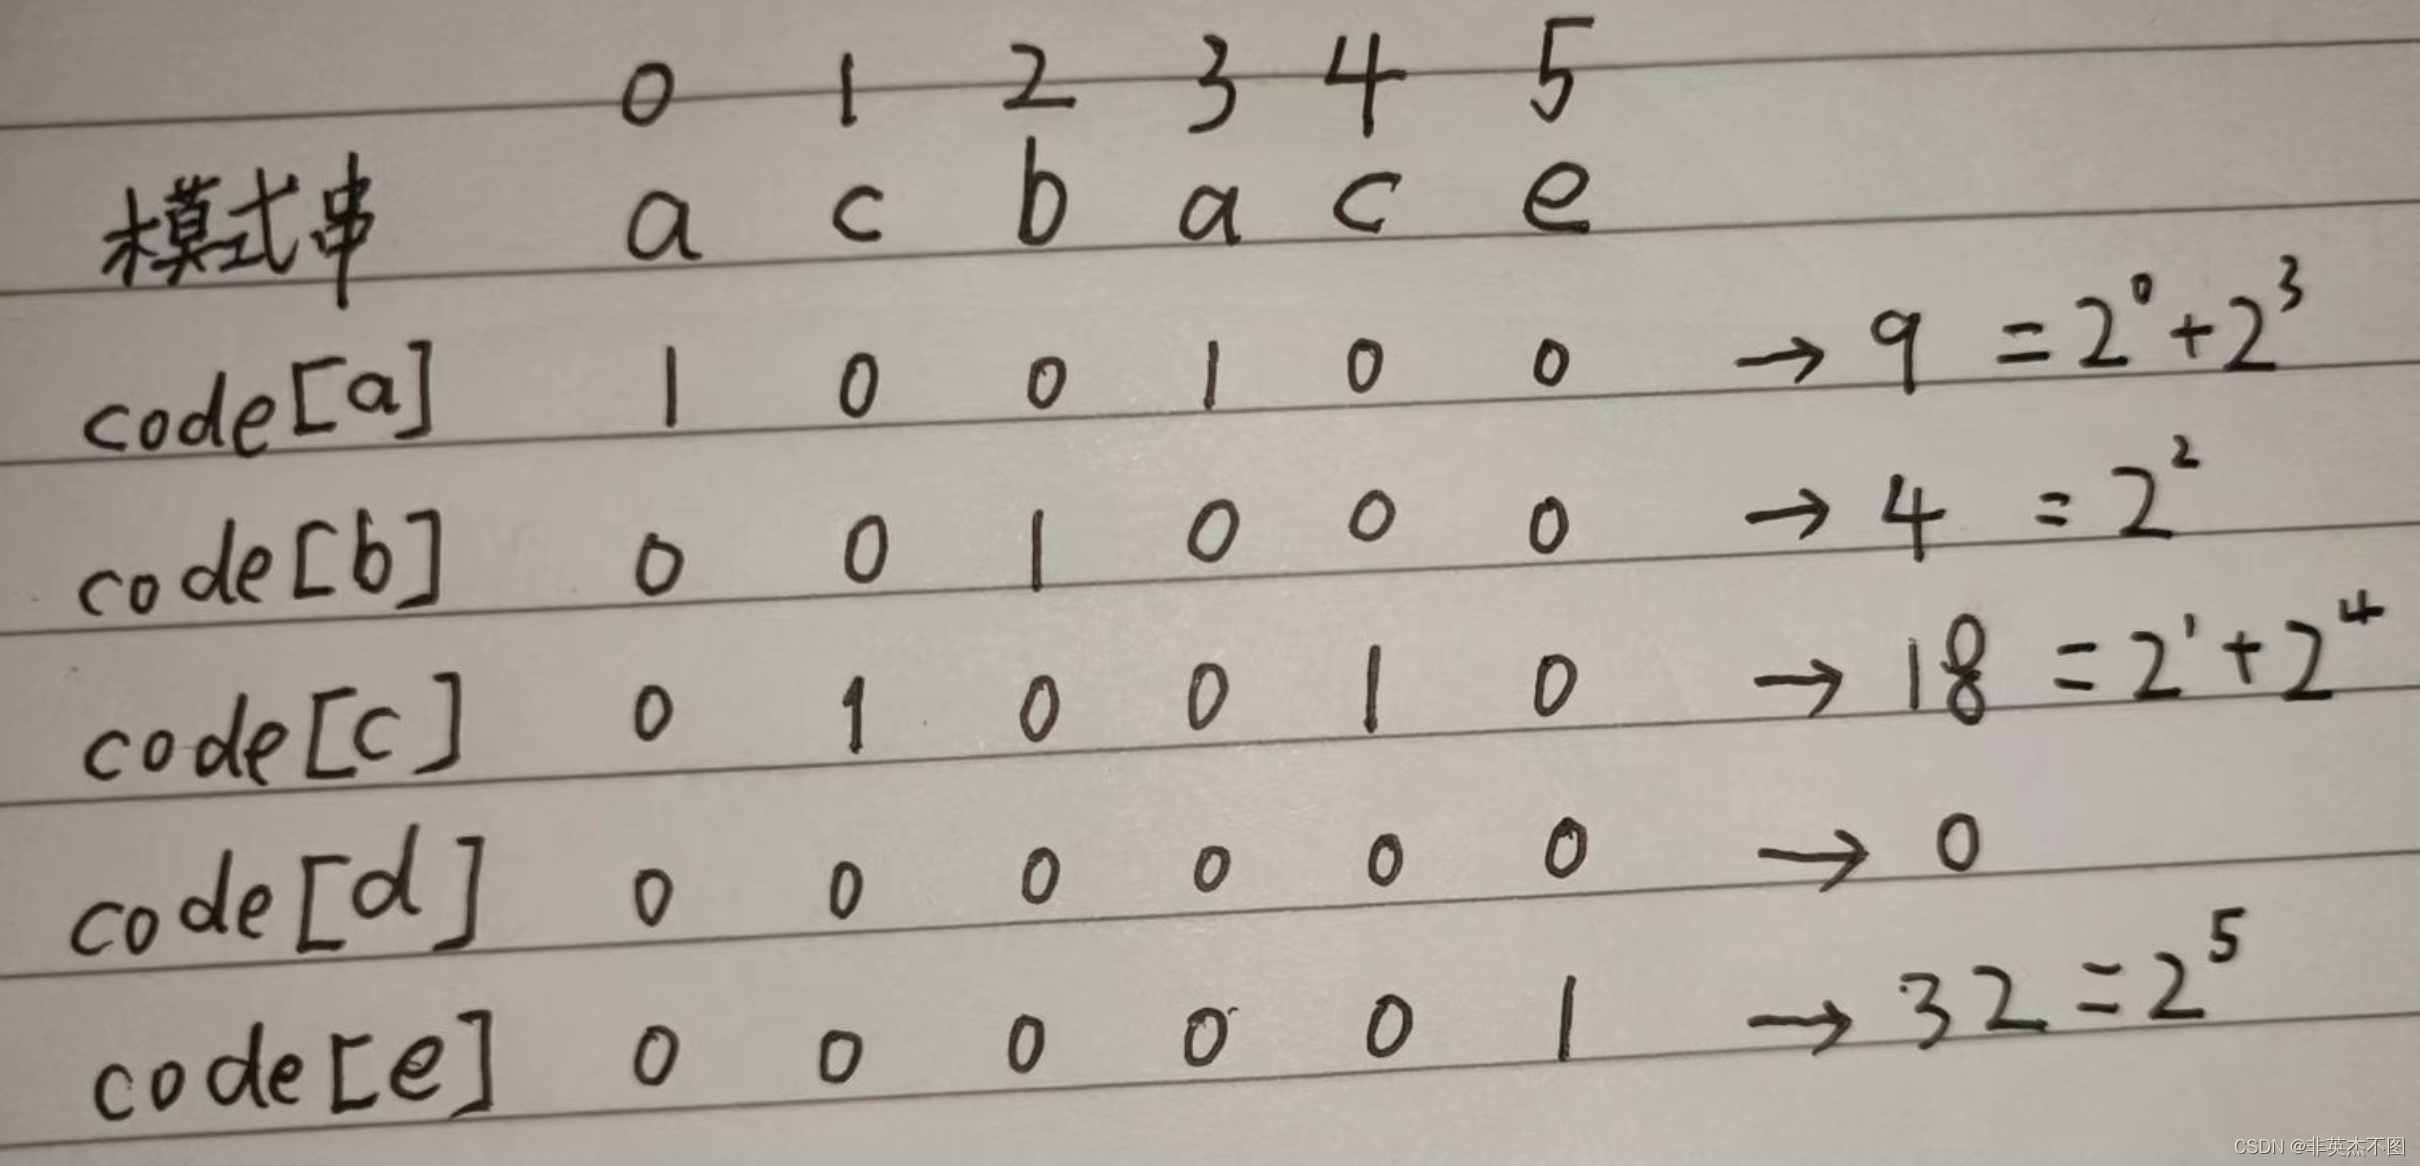 0 1 2 3 4 5
模式串 a c b a c e
code[a] 1 0 0 1 0 0 → 9 = 2⁰+2³
code[b] 0 0 1 0 0 0 → 4 = 2²
code[c] 0 1 0 0 1 0 → 18 = 2¹+2⁴
code[d] 0 0 0 0 0 0 → 0
code[e] 0 0 0 0 0 1 → 32 = 2⁵
CSDN @非英杰不图